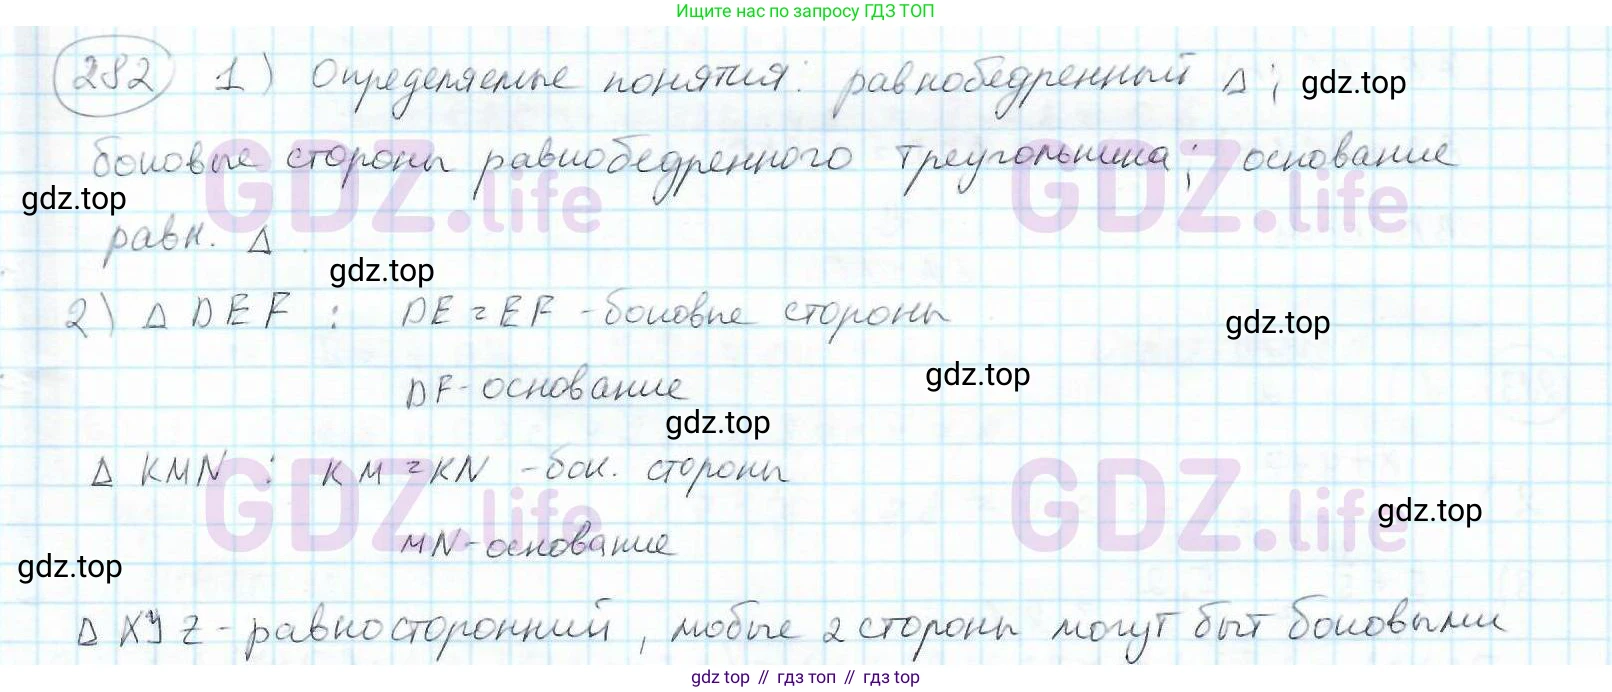 Ищите нас по запросу ГДЗ ТОП
282 1) Определяемые понятия: равнобедренный Δ; gdz.top
боковые стороны равнобедренного треугольника; основание
gdz.top GDZ.life GDZ.life
равн. Δ
gdz.top
2) Δ DEF : DE = EF - боковые стороны
gdz.top
DF - основание gdz.top
gdz.top
Δ KMN : KM = KN - бок. стороны
GDZ.life GDZ.life gdz.top
MN - основание
gdz.top
Δ XYZ - равносторонний, любые 2 стороны могут быт боковыми
gdz.top // гдз топ // gdz.top